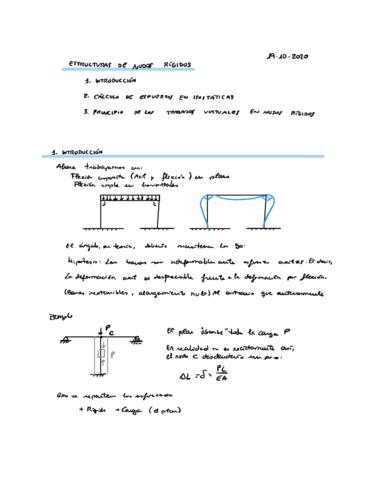 19-10-2020
ESTRUCTURAS DE NUDOS RÍGIDOS
1. INTRODUCCIÓN
2. CÁLCULO DE ESFUERZOS EN ISOSTÁTICAS
3. PRINCIPIO DE LOS TRABAJOS VIRTUALES EN NUDOS RÍGIDOS
1. INTRODUCCIÓN
Ahora trabajamos con:
Flexión compuesta (Axil y flexión) en pilares
Flexión simple en horizontales
El ángulo, en teoría, debería mantener los 90º
Hipótesis: Las barras son indeformables ante esfuerzos axiles. Es decir,
la deformación axil es despreciable frente a la deformación por flexión.
(Barras inextensibles, alargamiento nulo) Al contrario que anteriormente
Ejemplo
P
C
P
El pilar "absorbe" toda la carga P
En realidad no es exactamente así,
el nodo C descendería un poco:
ΔL = δ = PL
EA
se reparten los esfuerzos
+ Rígido → + Carga (el pilar)